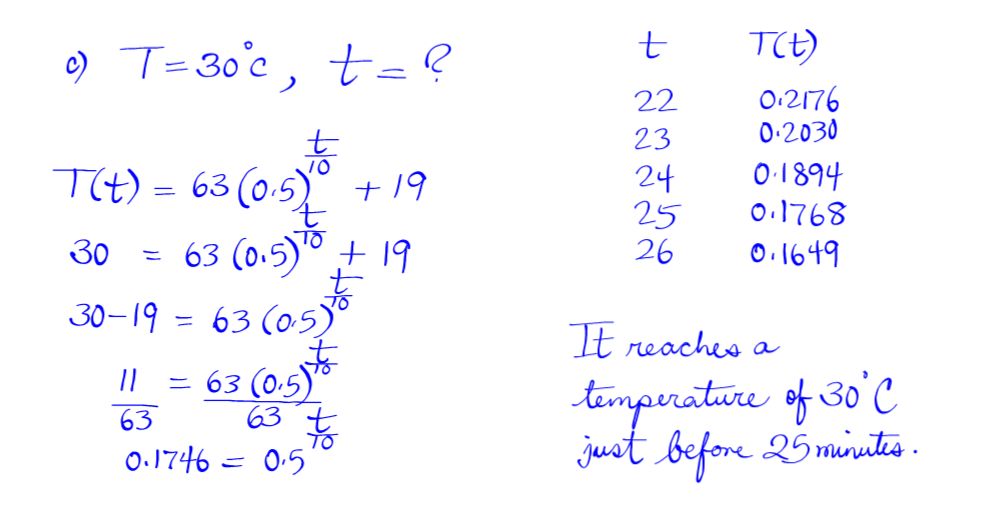 c) T = 30°C, t = ?
T(t) = 63(0.5)^(t/10) + 19
30 = 63(0.5)^(t/10) + 19
30-19 = 63(0.5)^(t/10)
11/63 = 63(0.5)^(t/10)/63
0.1746 = 0.5^(t/10)
t T(t)
22 0.2176
23 0.2030
24 0.1894
25 0.1768
26 0.1649
It reaches a
temperature of 30°C
just before 25 minutes.